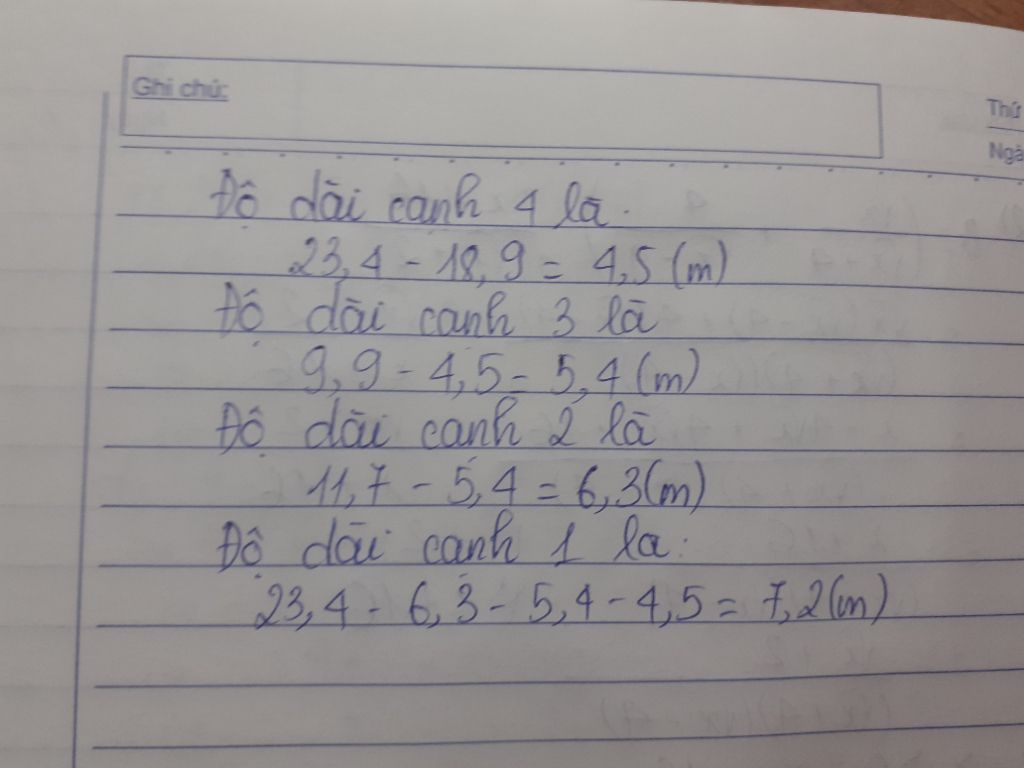 Ghi chú:
Thứ
Ngà
Độ dài cạnh 4 là.
23,4 - 18,9 = 4,5 (m)
Độ dài cạnh 3 là
9,9 - 4,5 = 5,4 (m)
Độ dài cạnh 2 là
11,7 - 5,4 = 6,3 (m)
Độ dài cạnh 1 la:
23,4 - 6,3 - 5,4 - 4,5 = 7,2 (m)